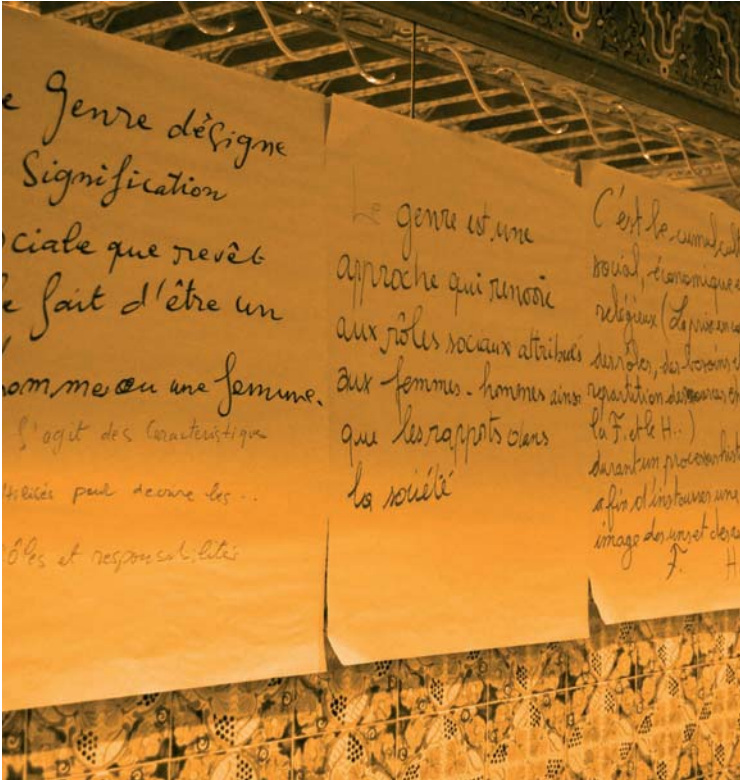 e Genre désigne
Signification
ociale que revêt
e fait d'être un
omme ou une femme.
s'agit des Caracteristique
utilisés pour decrire les ..
ôles et responsabilités
Le genre est une
approche qui renvoie
aux rôles sociaux attribués
aux femmes - hommes ainsi
que les rapports dans
la société
C'est le cumul cult
social, économique e
religieux (La prise en co
des rôles, des besoins e
repartition des
la F. et le H..)
durant un processus hist
afin d'instaurer une
image des uns et des
F. H